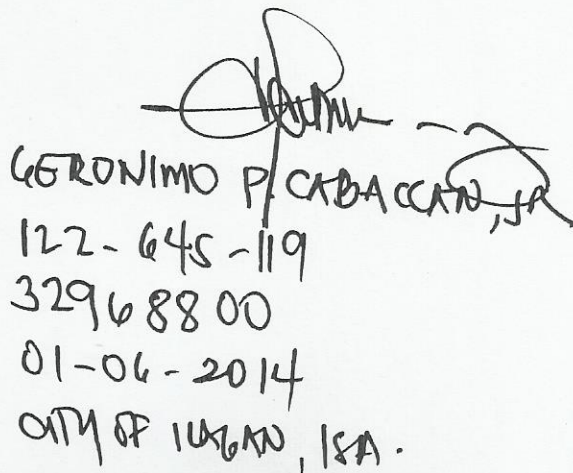 GERONIMO P. CABACCAN, JR.
122-645-119
32968800
01-06-2014
CITY OF ILAGAN, ISA.